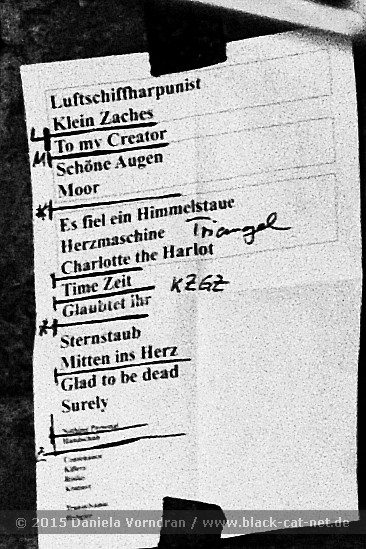 Luftschiffharpunist
Klein Zaches
To my Creator
Schöne Augen
Moor
Es fiel ein Himmelstaue
Herzmaschine Triangel
Charlotte the Harlot
Time Zeit KZGZ
Glaubtet ihr
Sternstaub
Mitten ins Herz
Glad to be dead
Surely
Nothing Personal
Handschuh
Killers
© 2015 Daniela Vorndran / www.black-cat-net.de